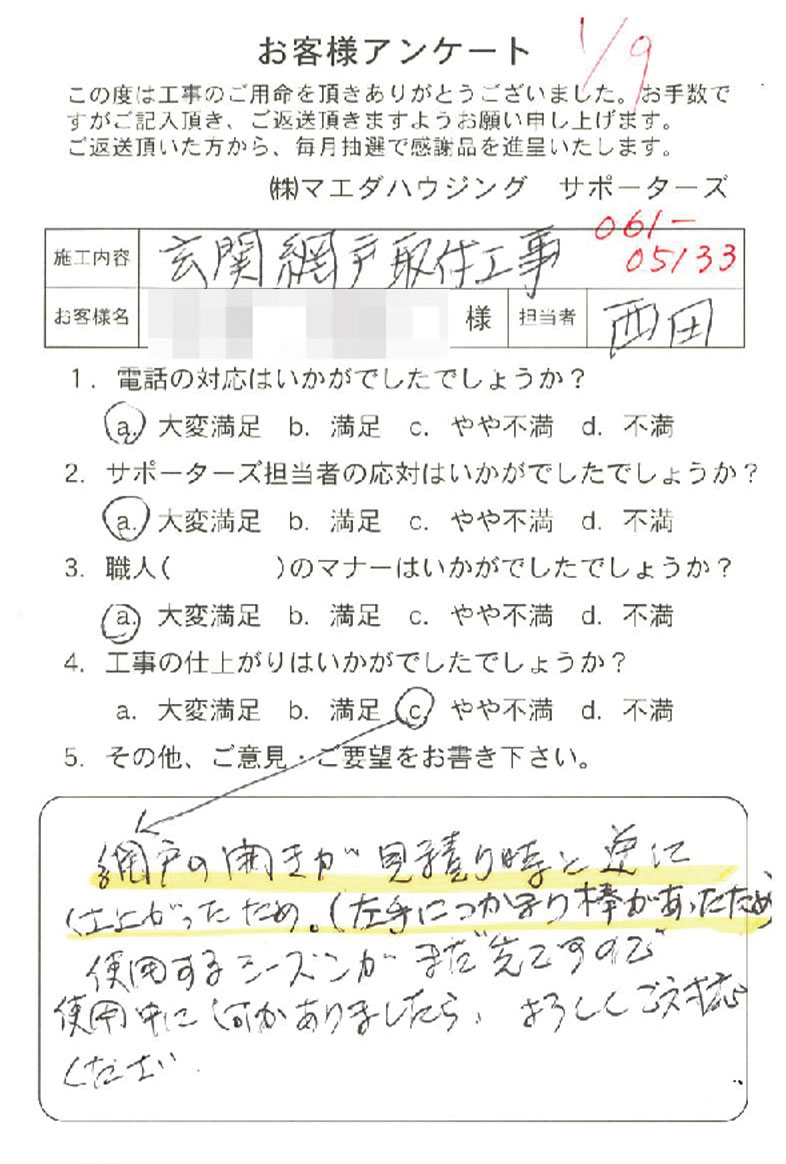 お客様アンケート
1/9
この度は工事のご用命を頂きありがとうございました。お手数で
すがご記入頂き、ご返送頂きますようお願い申し上げます。
ご返送頂いた方から、毎月抽選で感謝品を進呈いたします。
㈱マエダハウジング サポーターズ
061-
05133
施工内容 玄関網戸取付工事
お客様名 様 担当者 西田
1. 電話の対応はいかがでしたでしょうか?
a. 大変満足 b. 満足 c. やや不満 d. 不満
2. サポーターズ担当者の応対はいかがでしたでしょうか?
a. 大変満足 b. 満足 c. やや不満 d. 不満
3. 職人( )のマナーはいかがでしたでしょうか?
a. 大変満足 b. 満足 c. やや不満 d. 不満
4. 工事の仕上がりはいかがでしたでしょうか?
a. 大変満足 b. 満足 c. やや不満 d. 不満
5. その他、ご意見・ご要望をお書き下さい。
網戸の開きが見積り時と逆に
仕上がったため。(左手につかまり棒があったため
使用するシーズンがまだ先ですので
使用中に何かありましたら、よろしくご対応
ください.